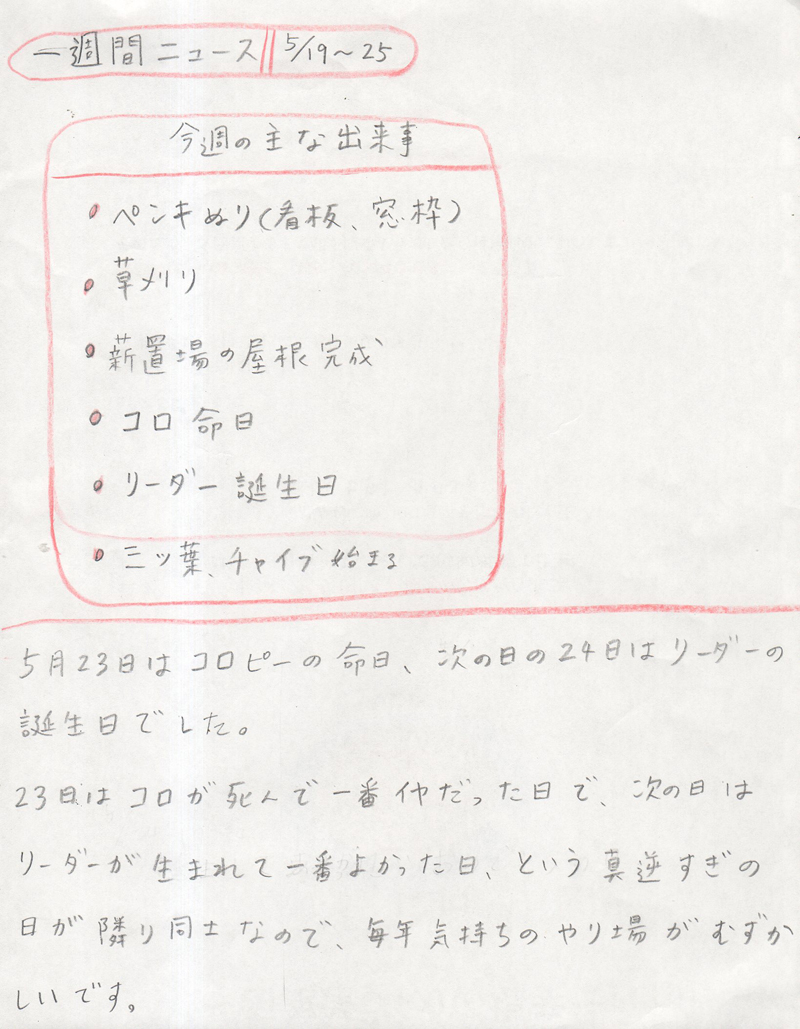 一週間ニュース 5/19〜25
今週の主な出来事
ペンキぬり(看板、窓枠)
草刈り
薪置場の屋根完成
コロ命日
リーダー誕生日
三ッ葉、チャイブ始まる
5月23日はコロピーの命日、次の日の24日はリーダーの
誕生日でした。
23日はコロが死んで一番イヤだった日で、次の日は
リーダーが生まれて一番よかった日、という真逆すぎの
日が隣り同士なので、毎年気持ちのやり場がむずか
しいです。